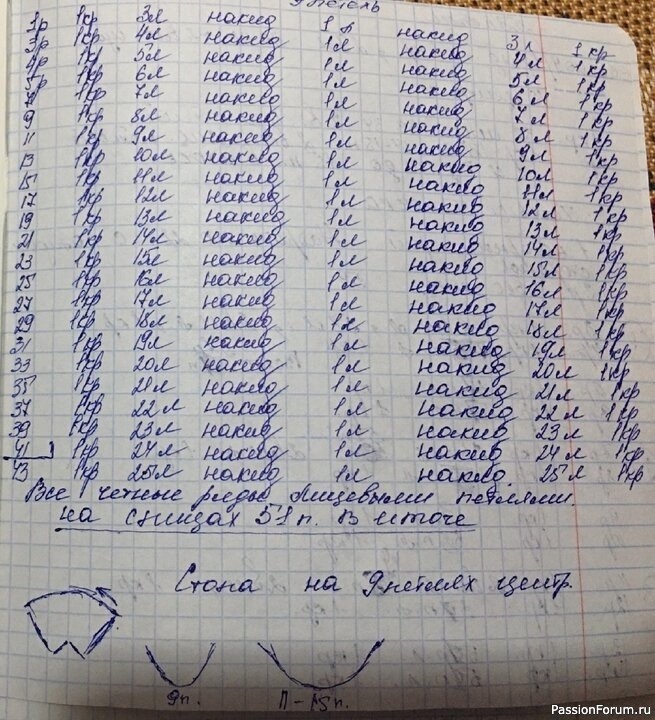 9 петель
1р 1кр 3л накид 1л накид 3л 1кр
3р 1кр 4л накид 1л накид 4л 1кр
4р 1кр 5л накид 1л накид 5л 1кр
5р 1кр 6л накид 1л накид 6л 1кр
7 1кр 7л накид 1л накид 7л 1кр
9 1кр 8л накид 1л накид 8л 1кр
11 1кр 9л накид 1л накид 9л 1кр
13 1кр 10л накид 1л накид 10л 1кр
15 1кр 11л накид 1л накид 11л 1кр
17 1кр 12л накид 1л накид 12л 1кр
19 1кр 13л накид 1л накид 13л 1кр
21 1кр 14л накид 1л накид 14л 1кр
23 1кр 15л накид 1л накид 15л 1кр
25 1кр 16л накид 1л накид 16л 1кр
27 1кр 17л накид 1л накид 17л 1кр
29 1кр 18л накид 1л накид 18л 1кр
31 1кр 19л накид 1л накид 19л 1кр
33 1кр 20л накид 1л накид 20л 1кр
35 1кр 21л накид 1л накид 21л 1кр
37 1кр 22л накид 1л накид 22л 1кр
39 1кр 23л накид 1л накид 23л 1кр
41 1кр 24л накид 1л накид 24л 1кр
43 1кр 25л накид 1л накид 25л 1кр
Все четные ряды лицевыми петлями.
на спицах 51п. В итоге
Стопа на 9 петлях центр.
9п. 11-15п.
PassionForum.ru